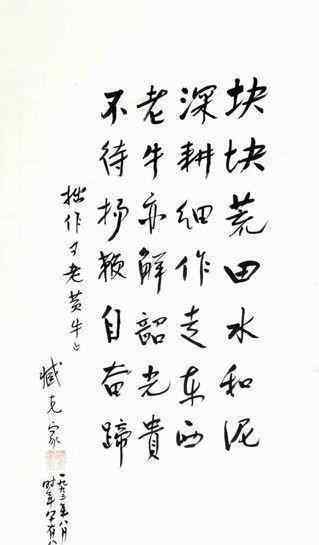 块块荒田水和泥
深耕细作走东西
老牛亦解韶光貴
不待扬鞭自奋蹄
拙作《老黄牛》
臧克家